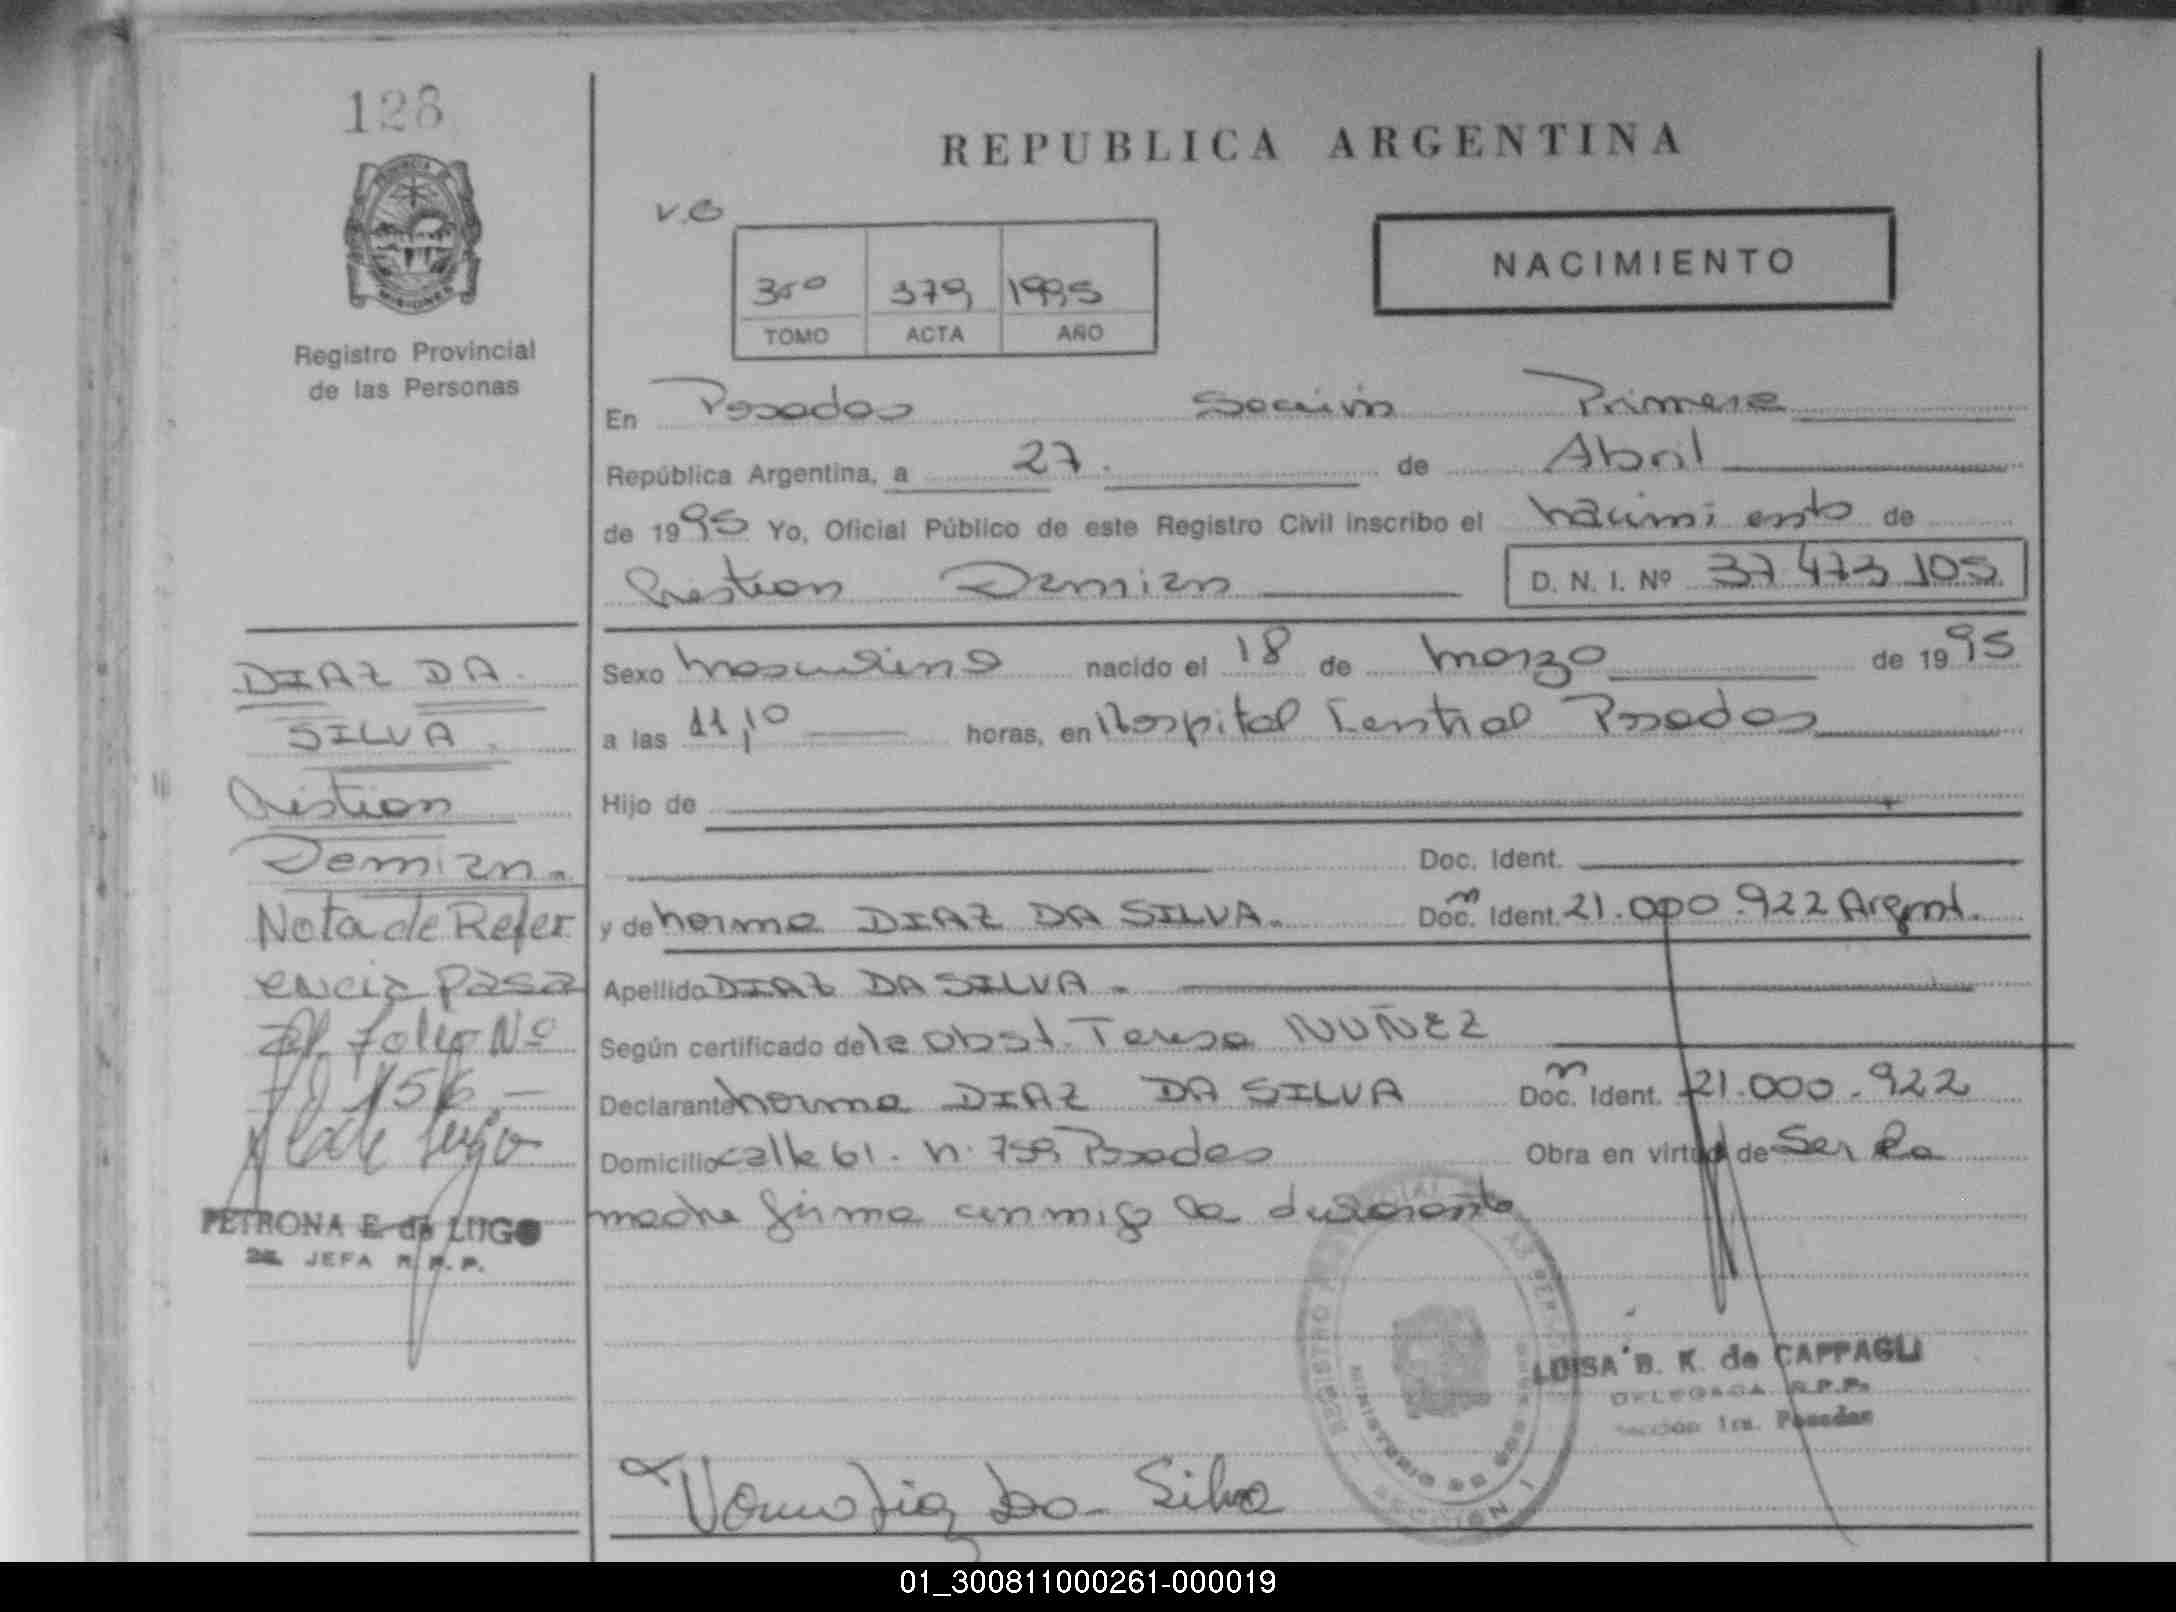 128
REPUBLICA ARGENTINA
PROVINCIA
MISIONES
Registro Provincial
de las Personas
V.B
3ro 379 1995
TOMO ACTA AÑO
NACIMIENTO
En Posadas Sección Primera
República Argentina, a 27. de Abril
de 1995 Yo, Oficial Público de este Registro Civil inscribo el nacimiento de
Cristian Damian D. N. I. Nº 37 473 105
DIAZ DA.
SILVA.
Cristian
Damian.
Nota de Refer
encia pasa
al folio Nº
156.-
PETRONA E de LUGO
JEFA R.P.P.
Sexo masculino nacido el 18 de marzo de 1995
a las 11,10 horas, en Hospital Central Posadas
Hijo de
Doc. Ident.
y de norma DIAZ DA SILVA. Doc. Ident. 21.000.922 Argent.
Apellido DIAZ DA SILVA.
Según certificado de la obst. Teresa NUÑEZ
Declarante norma DIAZ DA SILVA Doc. Ident. 21.000.922
Domicilio calle 61. n. 759 Posadas Obra en virtud de Ser la
madre firma conmigo la declarante
LUISA B. K. de CAPPAGLI
DELEGADA R.P.P.
Sección 1ra. Posadas
Norma Diaz Da Silva
01_300811000261-000019